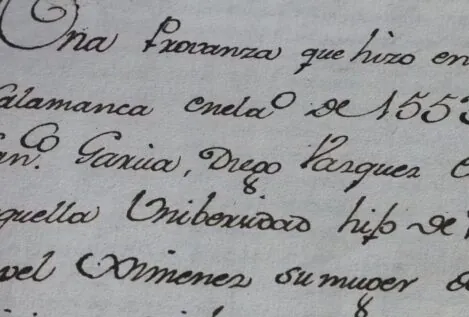 Una Provanza que hizo en
Salamanca enel aº de 1553
Garcia, Diego Vazquez
aquella Unibersidad hijo de
Ximenez su muger